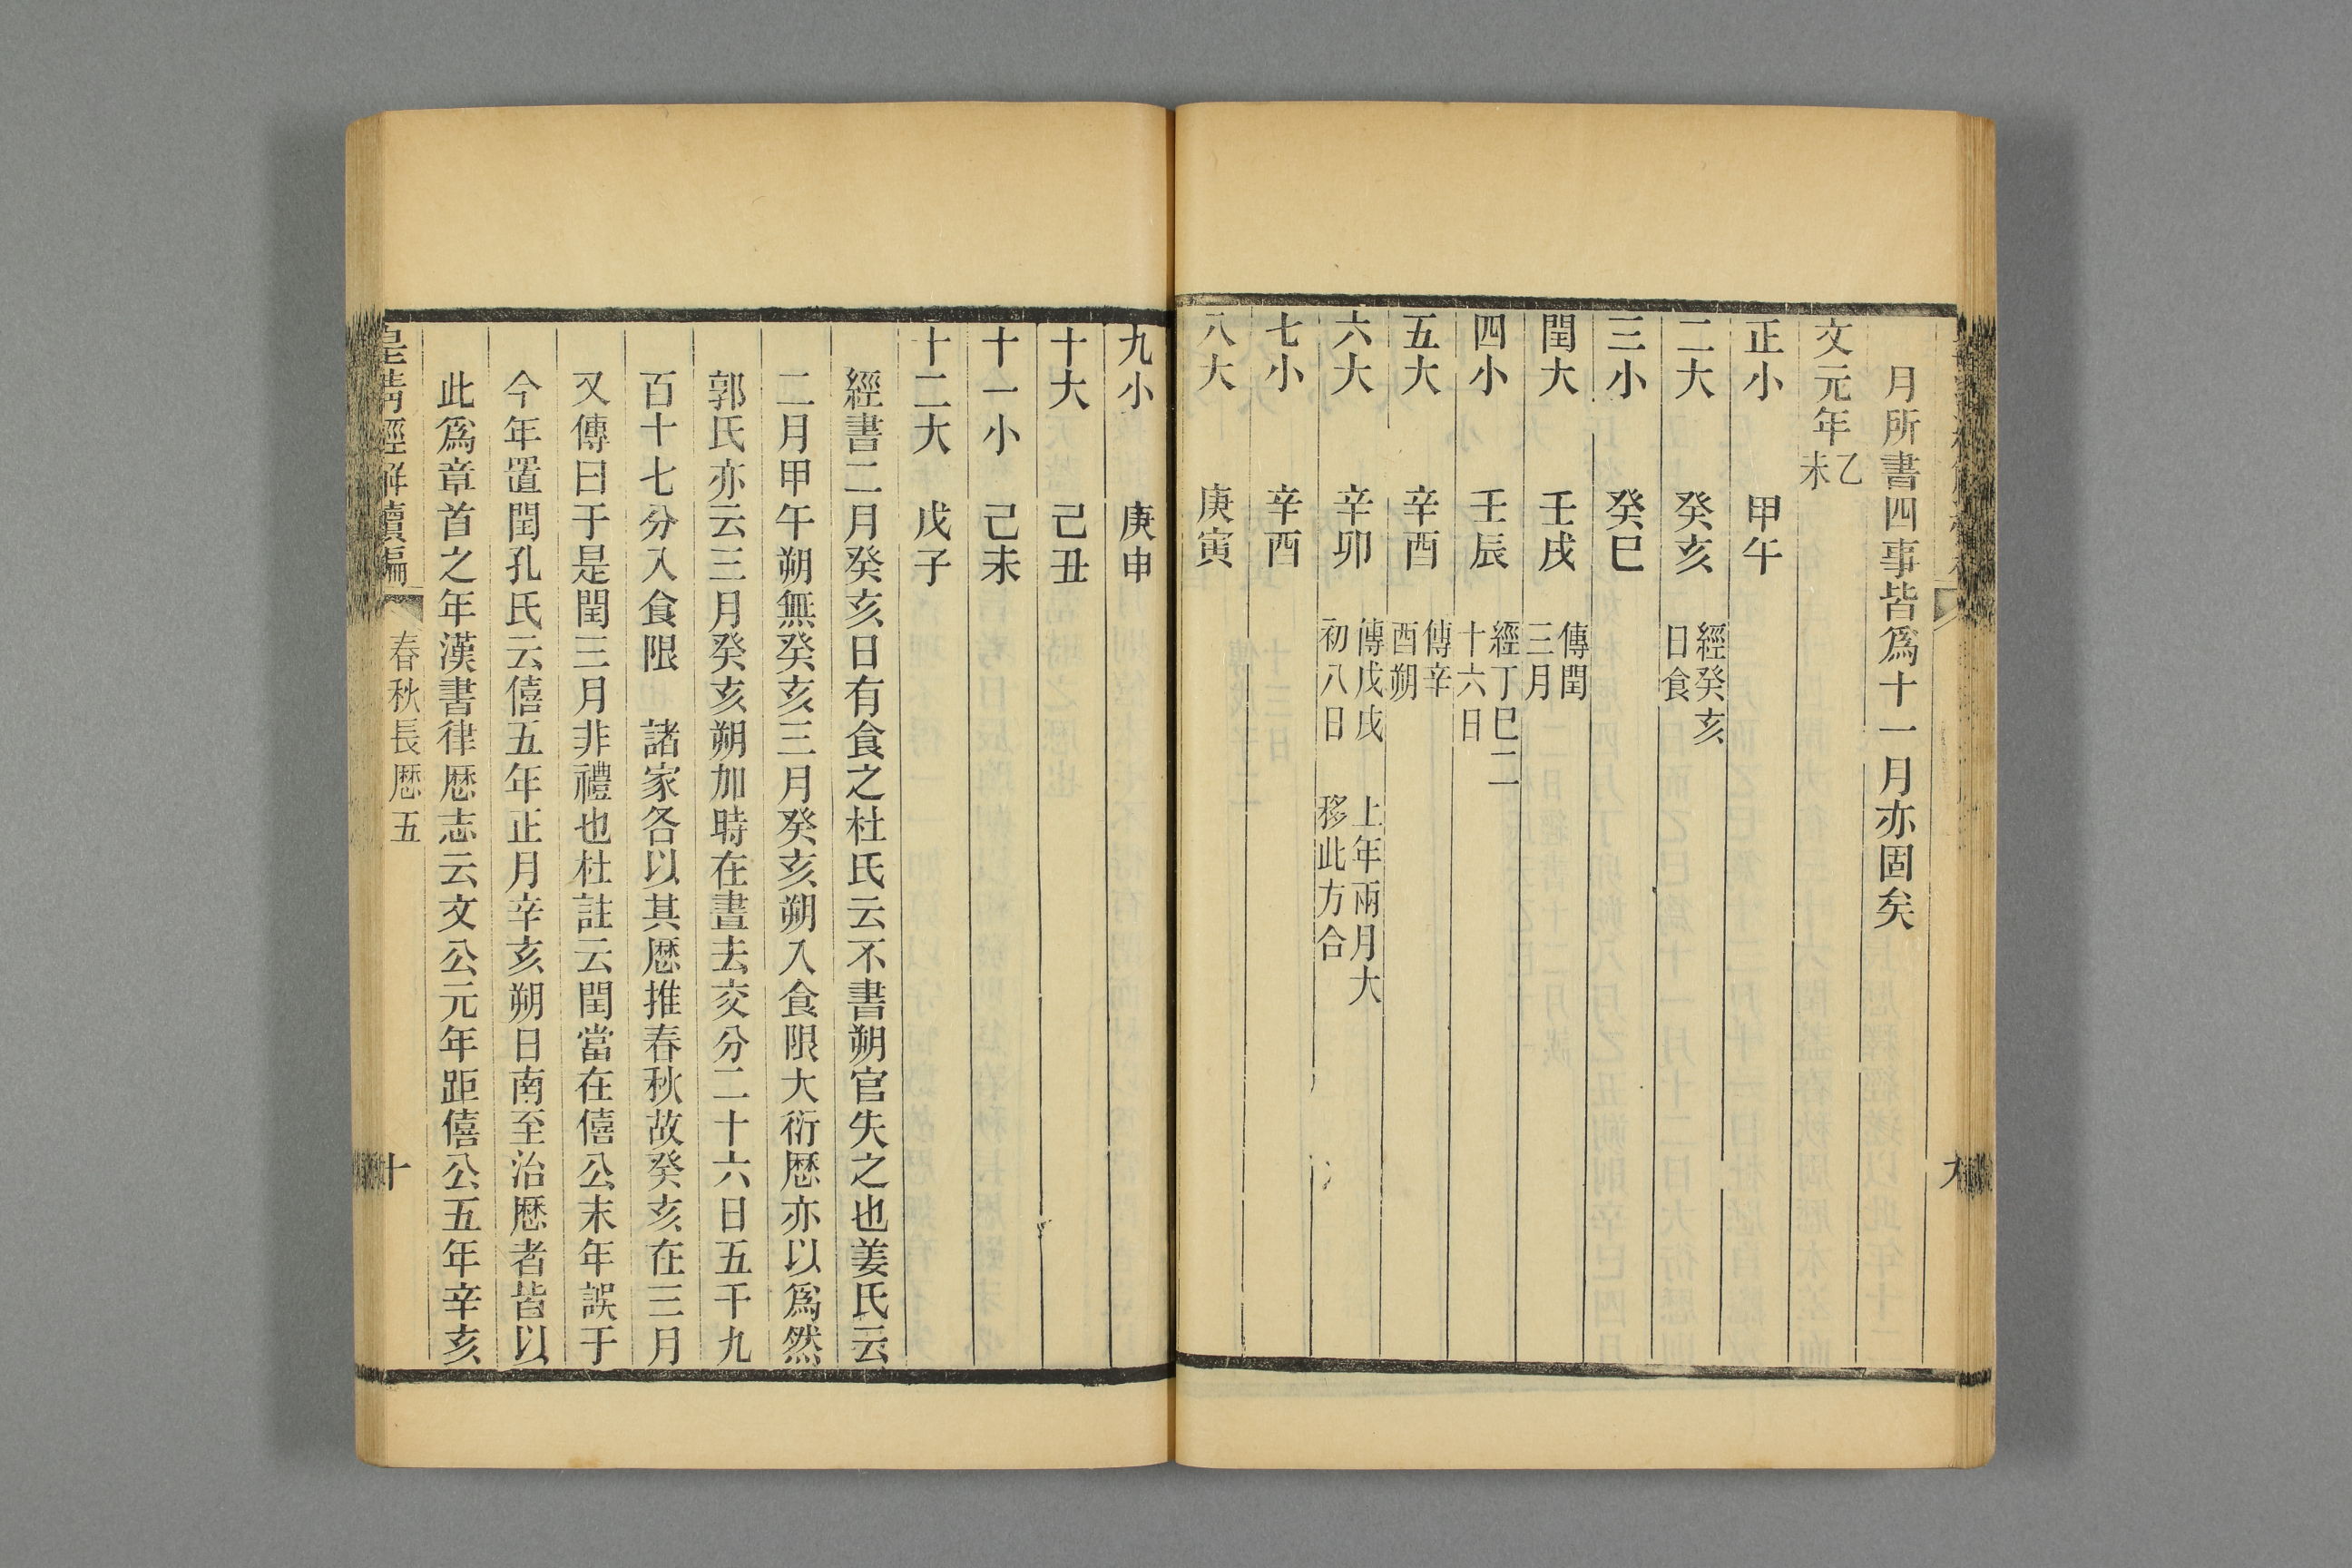 月所書四事皆爲十一月亦固矣
文元年乙未
正小 甲午
二大 癸亥 經癸亥日食
三小 癸巳
閏大 壬戌 傳閏三月
四小 壬辰 經丁巳二十六日
五大 辛酉 傳辛酉朔
六大 辛卯 傳戊戌初八日 上年兩月大移此方合
七小 辛酉
八大 庚寅
九小 庚申
十大 己丑
十一小 己未
十二大 戊子
經書二月癸亥日有食之杜氏云不書朔官失之也姜氏云
二月甲午朔無癸亥三月癸亥朔入食限大衍厯亦以爲然
郭氏亦云三月癸亥朔加時在晝去交分二十六日五千九
百十七分入食限 諸家各以其厯推春秋故癸亥在三月
又傳曰于是閏三月非禮也杜註云閏當在僖公末年誤于
今年置閏孔氏云僖五年正月辛亥朔日南至治厯者皆以
此爲章首之年漢書律厯志云文公元年距僖公五年辛亥
皇清經解續編 春秋長厯五 十